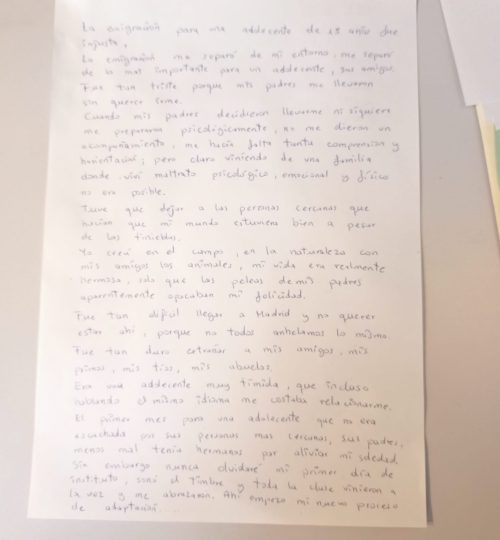 La emigración para una addecente de 15 años fue
injusta,
La emigración me separó de mi entorno, me separó
de lo mas importante para un addecente, sus amigos.
Fue tan triste porque mis padres me llevaron
sin querer irme.
Cuando mis padres decidieron llevarme ni siquiera
me prepararon psicológicamente, no me dieron un
acompañamiento, me hacía falta tanta comprension y
horientación; pero claro viniendo de una familia
donde viví maltrato psicológico, emocional y físico
no era posible.
Tuve que dejar a las personas cercanas que
hacían que mi mundo estuviera bien a pesar
de las tinieblas.
Yo crecí en el campo, en la naturaleza con
mis amigos los animales, mi vida era realmente
hermosa, solo que las peleas de mis padres
aparentemente opacaban mi felicidad.
Fue tan difícil llegar a Madrid y no querer
estar ahí, porque no todos anhelamos lo mismo.
Fue tan duro extrañar a mis amigos, mis
primos, mis tíos, mis abuelos.
Era una addecente muy tímida, que incluso
hablando el mismo idioma me costaba relacionarme.
El primer mes para una adolecente que no era
escuchada por sus personas mas cercanas, sus padres,
menos mal tenía hermanos par aliviar mi soledad.
Sin embargo nunca olvidaré mi primer día de
instituto, sonó el timbre y toda la clase vinieron a
la vez y me abrazaron. Ahí empezo mi nuevo proceso
de adaptación....